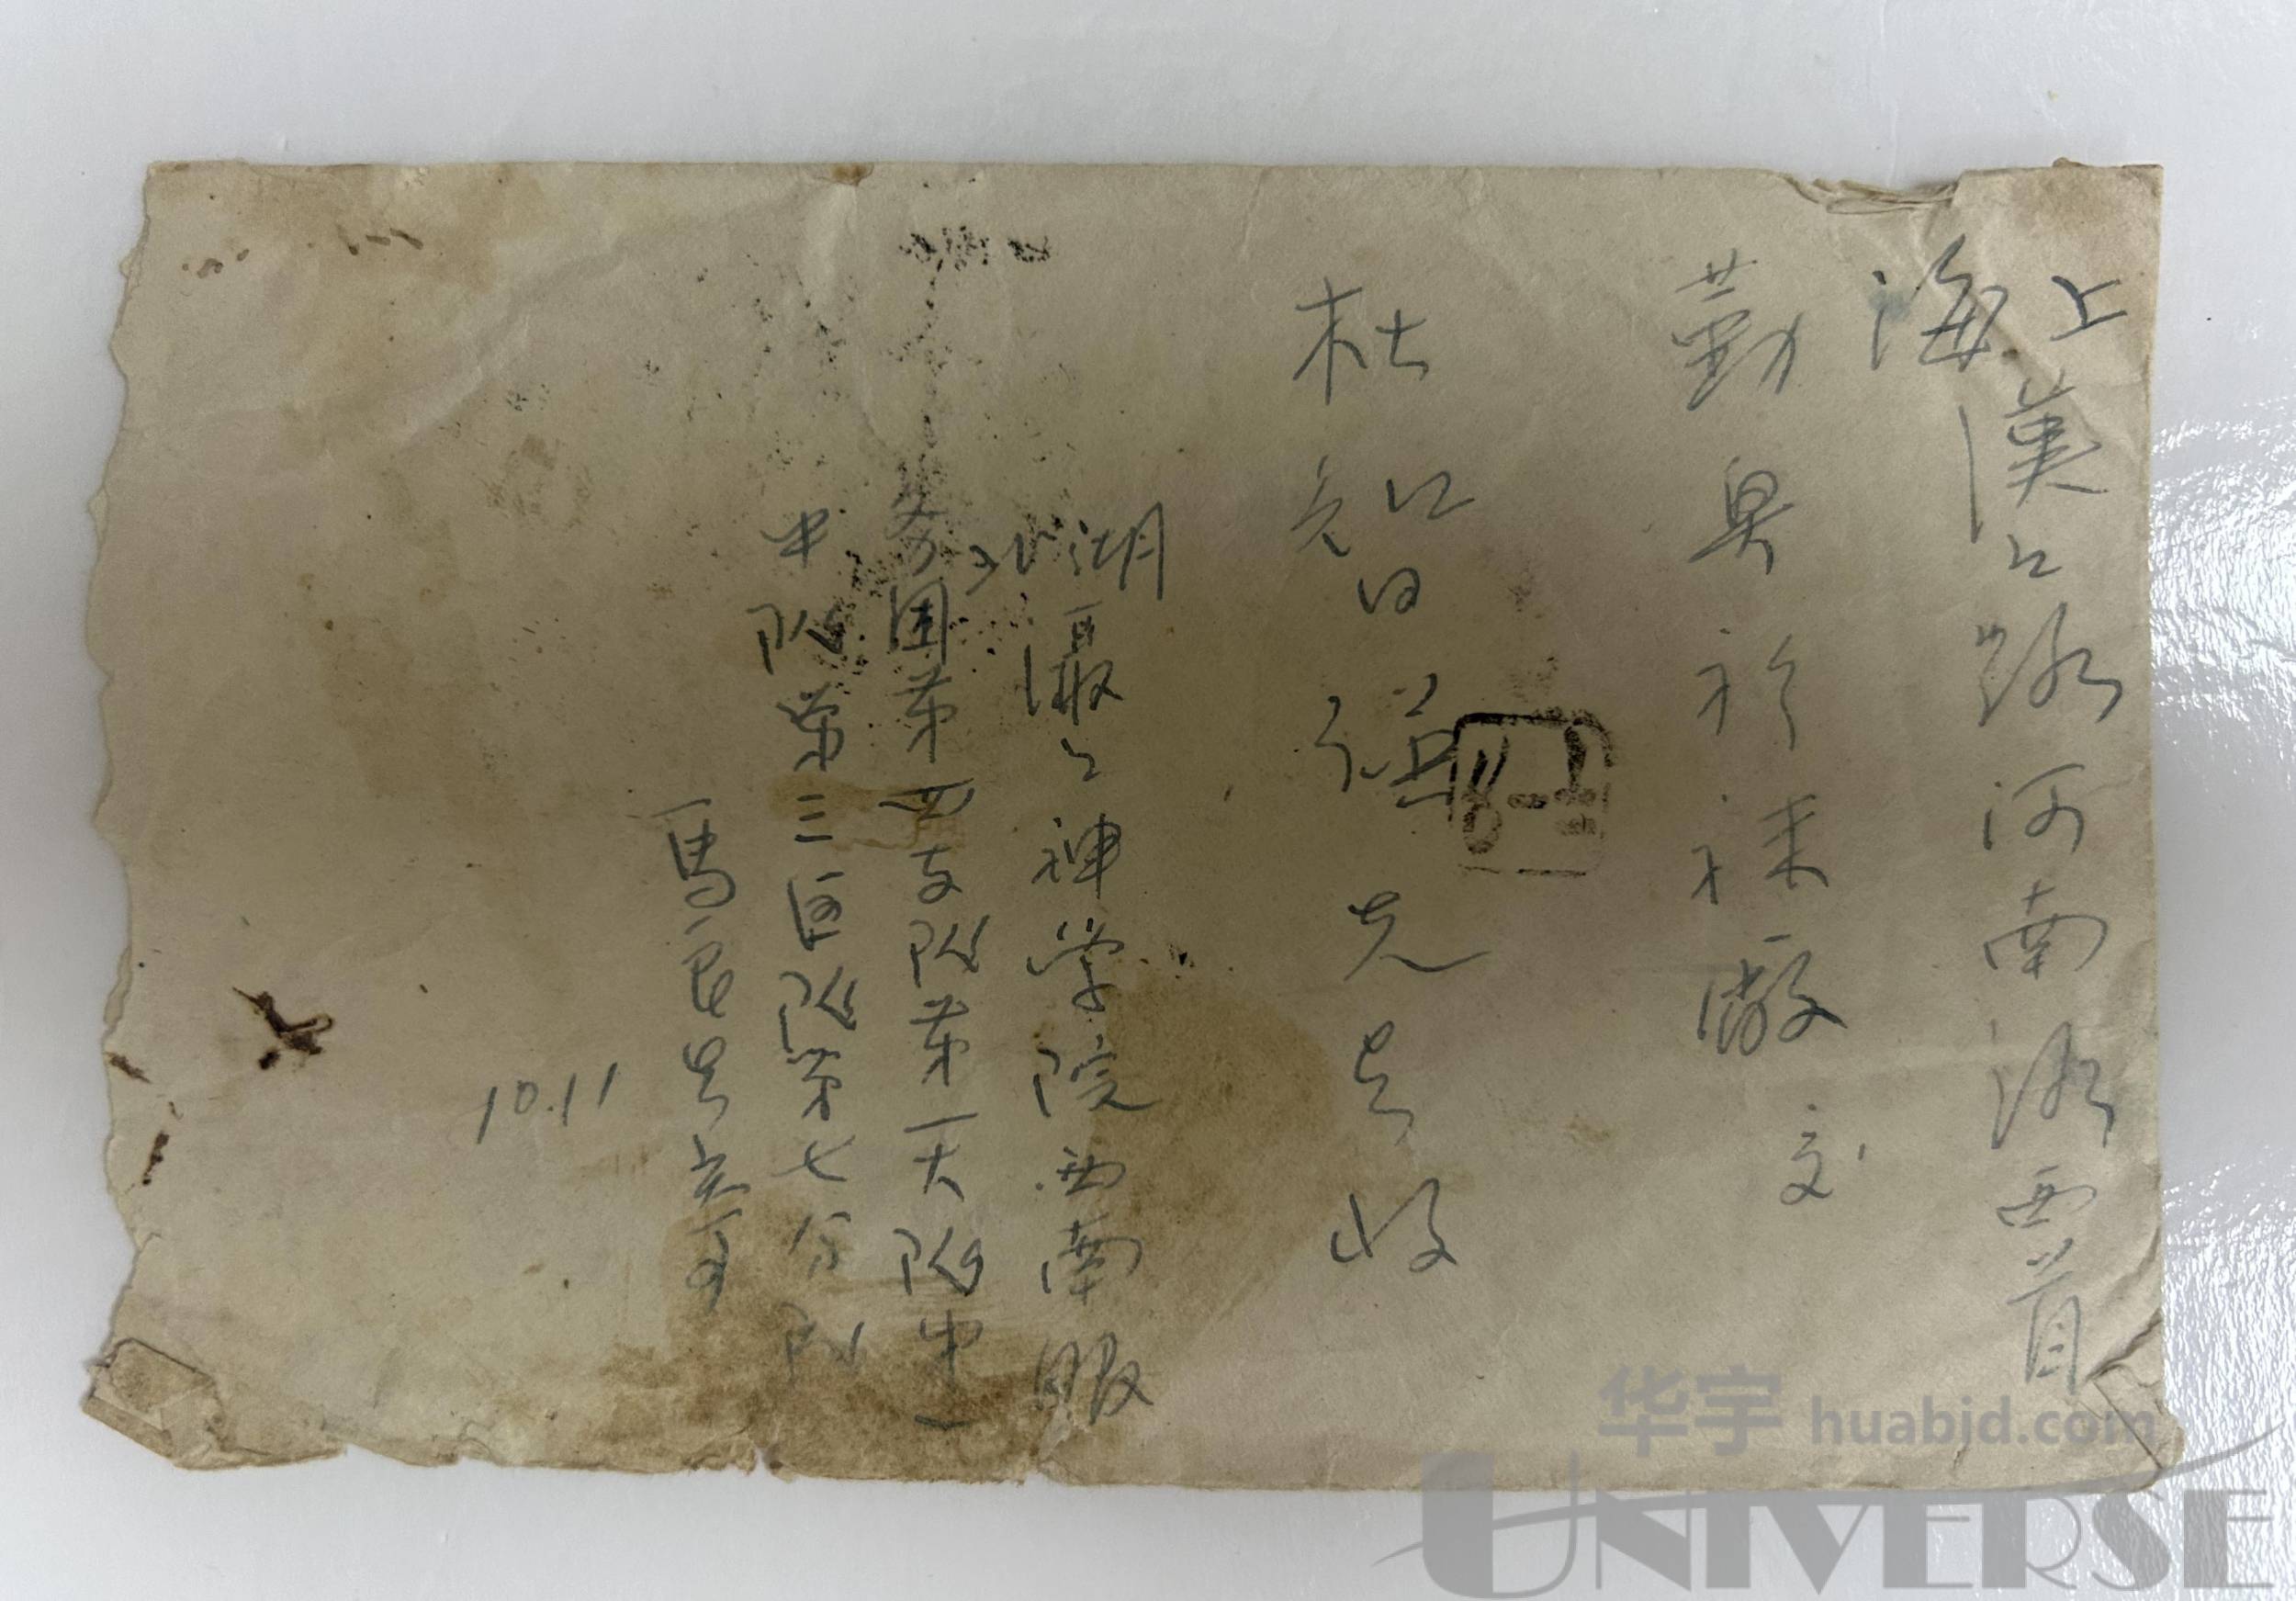 上海漢口路河南路西首
勤興衫襪廠交
杜智祺先生收
湖北漢口神学院西南服
务团第四支队第一大队中一
中队第三区队第七分队
馬
10.11
华宇 huabid.com
UNIVERSE